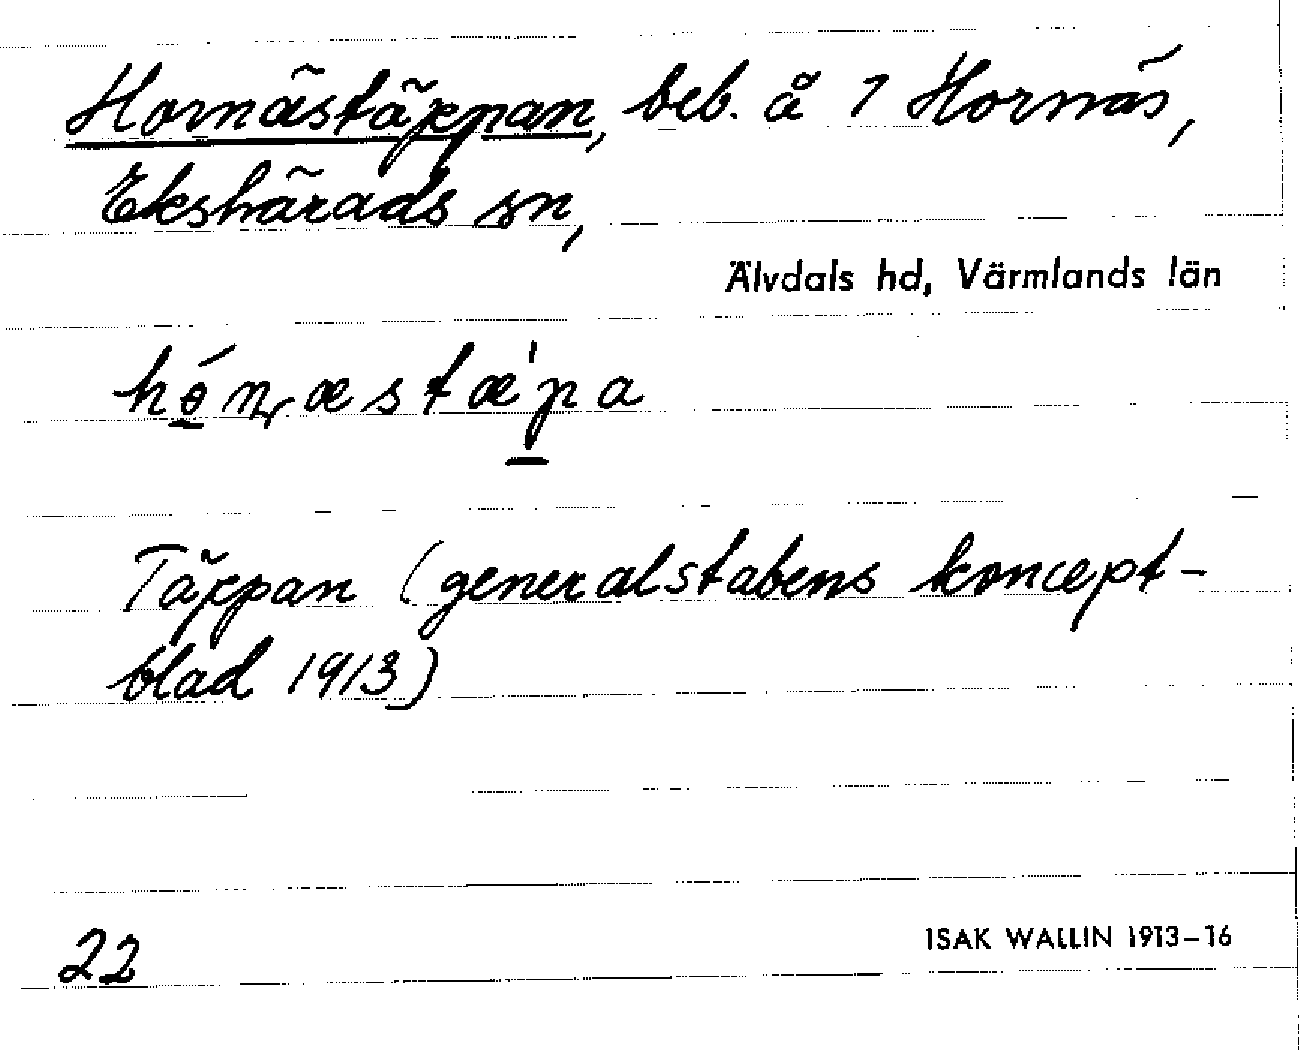 Hornästäppan, beb. å 1 Hornäs,
Ekshärads sn,
Älvdals hd, Värmlands län
hó̱ɳæstæ̀p̱a
Täppan (generalstabens koncept-
blad 1913)
22
ISAK WALLIN 1913–16